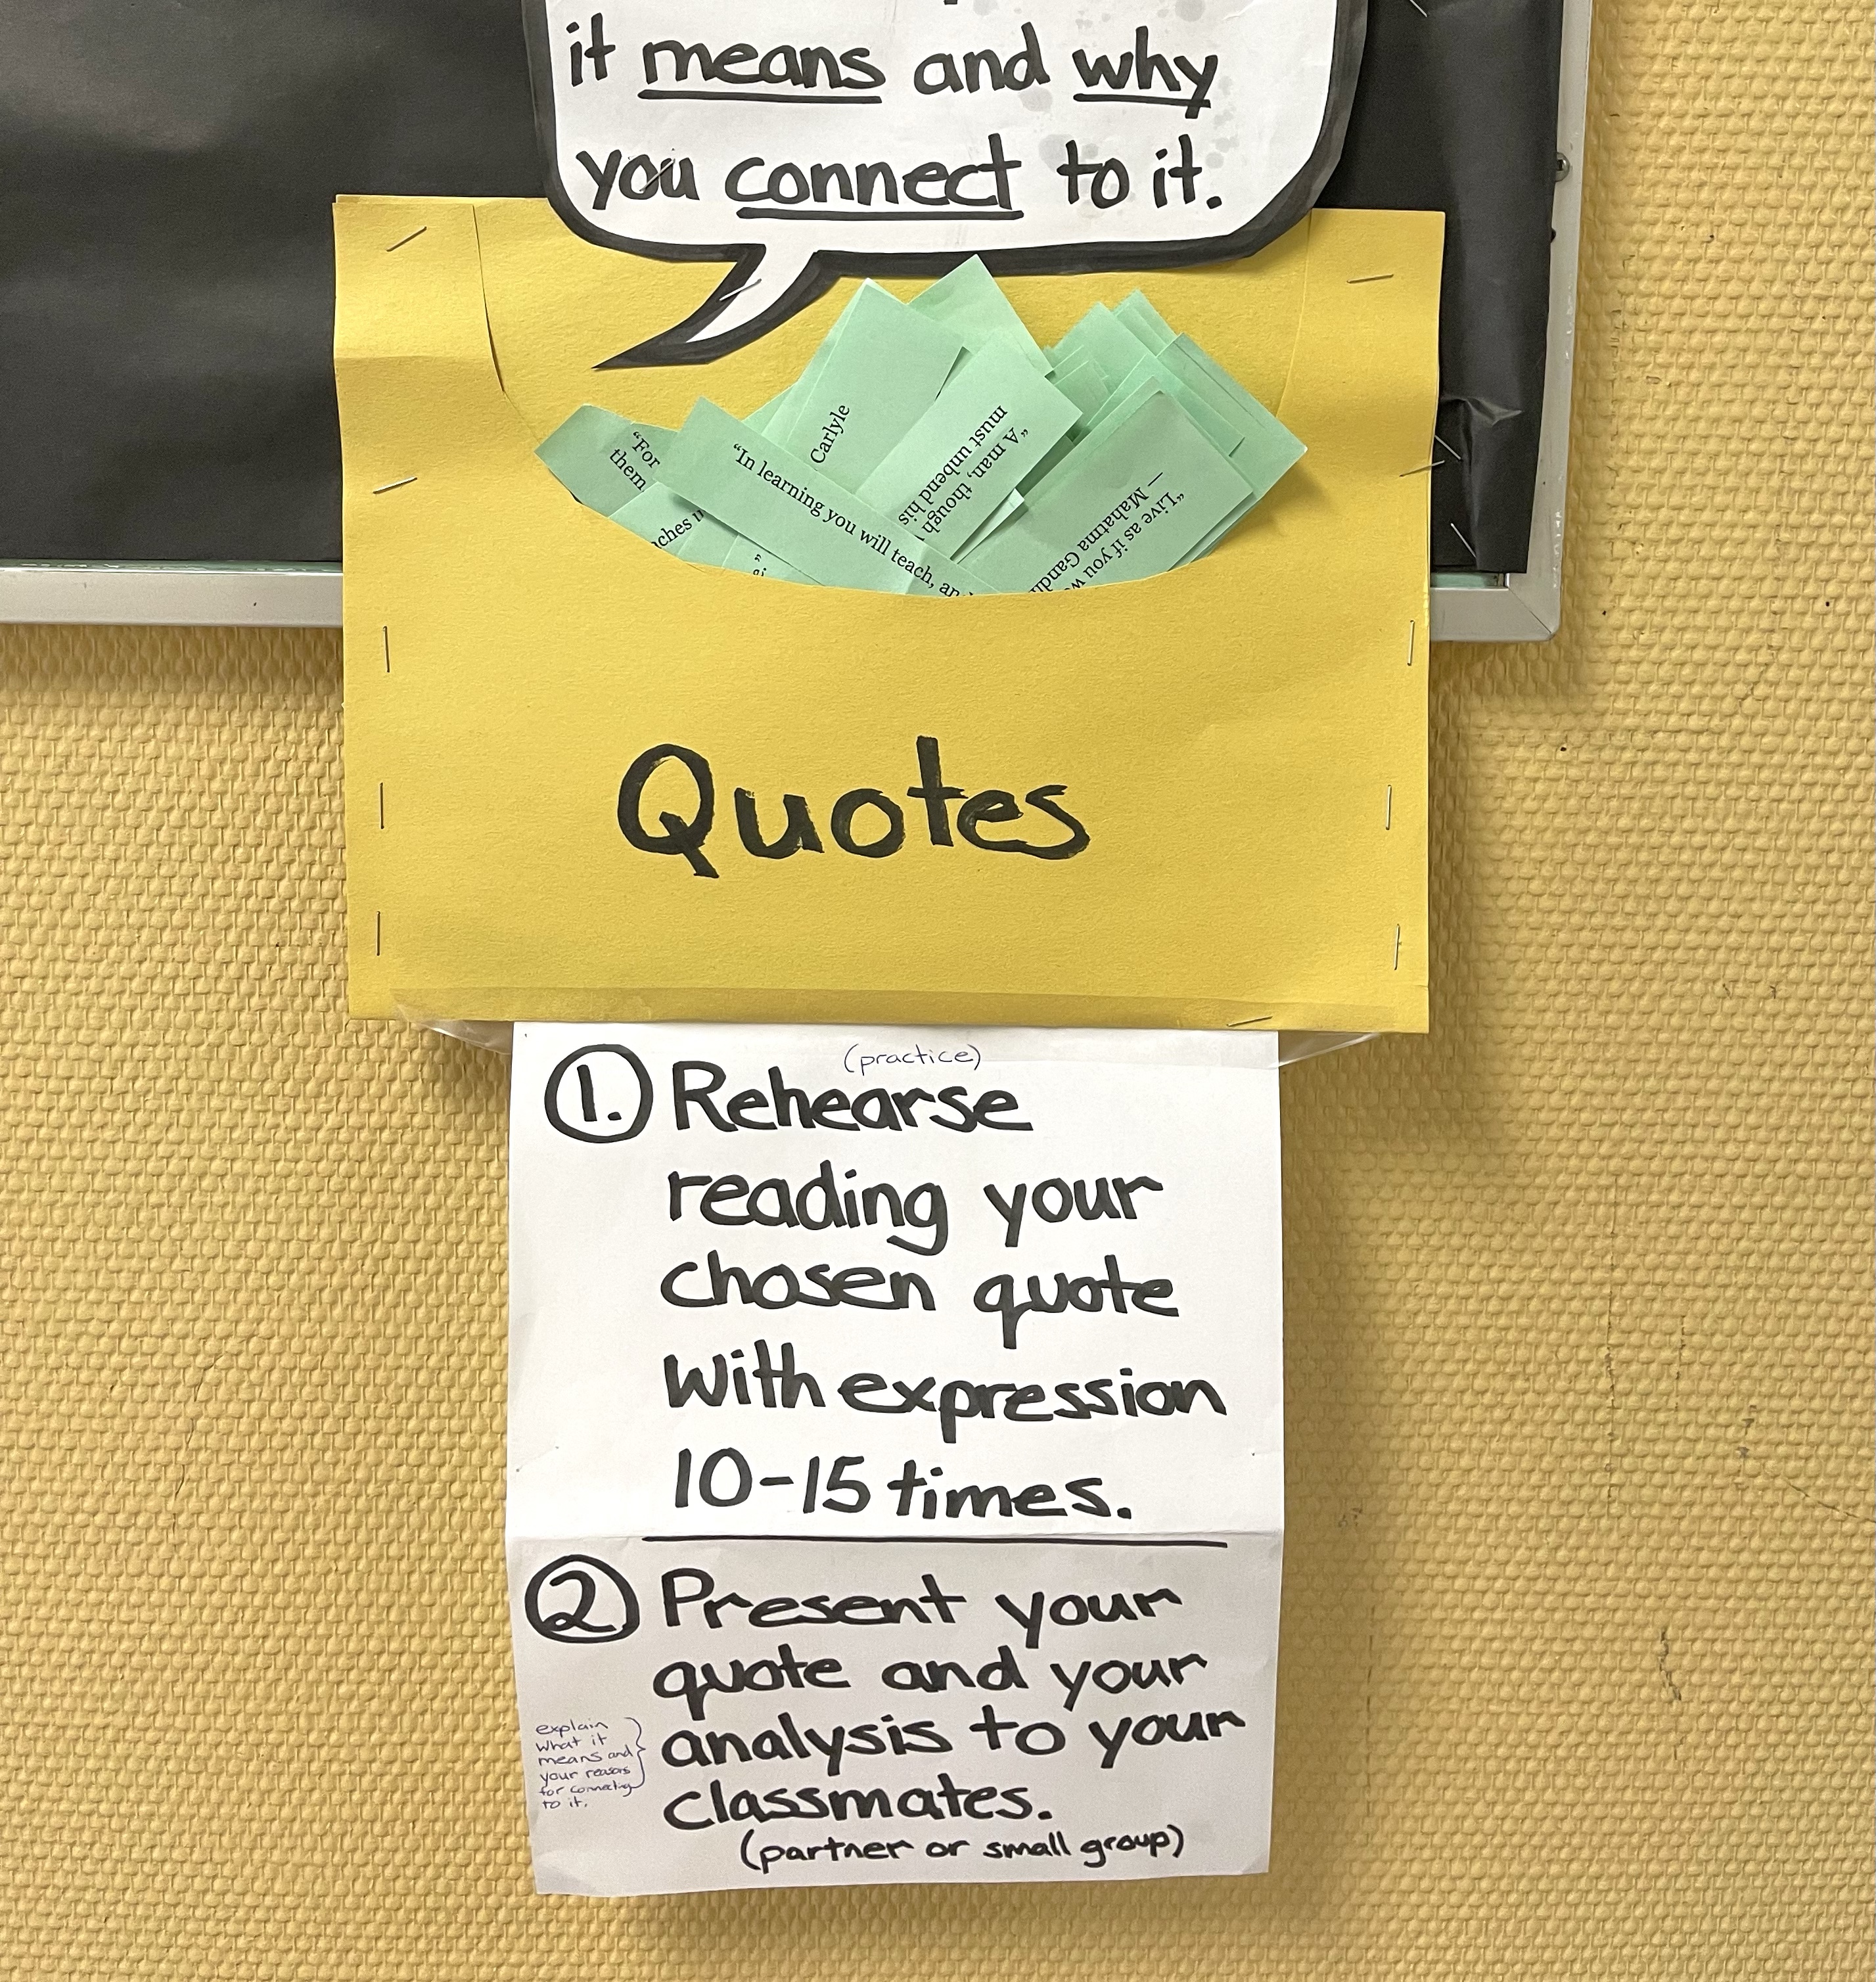 it means and why
you connect to it.
Carlyle
"For
them
"In learning you will teach,
"A man, though
must unbend his
"Live as if you
— Mahatma
Quotes
(practice)
1. Rehearse
reading your
chosen quote
with expression
10-15 times.
2 Present your
quote and your
analysis to your
classmates.
(partner or small group)
explain
what it
means and
your reasons
for connecting
to it.